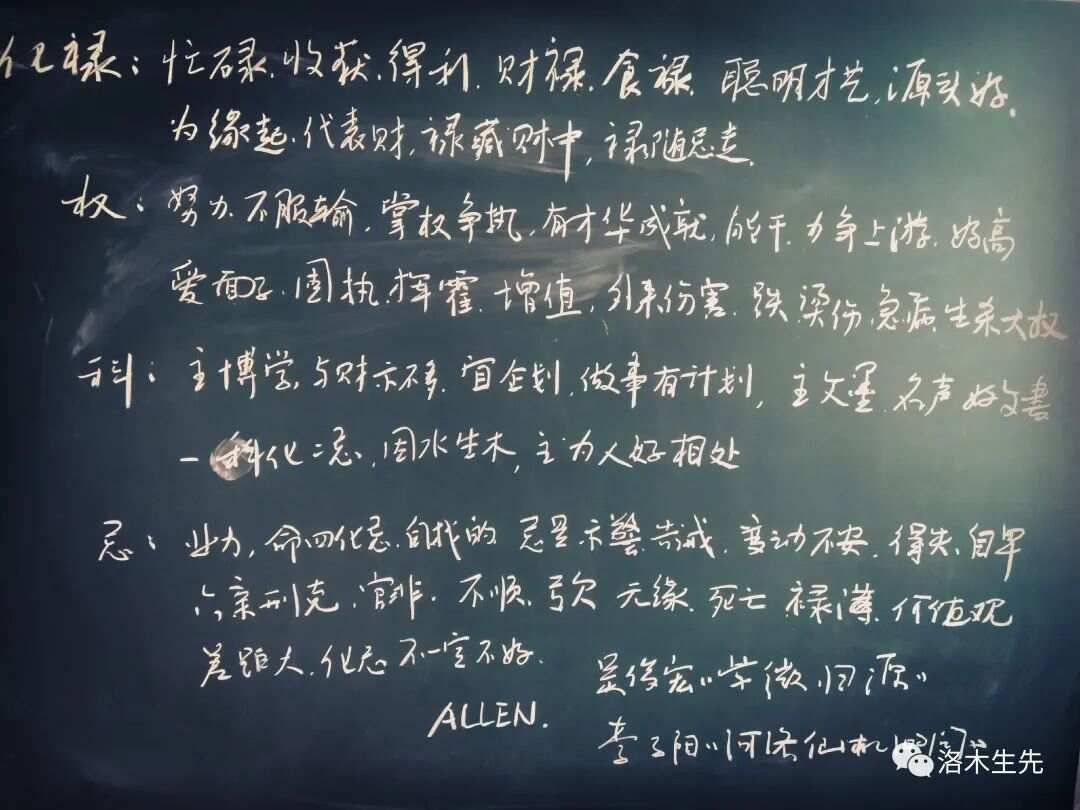 化禄：忙碌.收获.得利.财禄.食禄.聪明才艺.源头好.
为缘起.代表财,禄藏财中,禄随忌走.
权：努力.不服输,掌权争执,有才华成就,能干.力争上游.好高
爱面子.固执.挥霍.增值,外来伤害.跌.伤.急病.生杀大权
科：主博学,与财亦不多.宜企划.做事有计划,主文墨.名声好文書
一科化二忌,因水生木,主为人好相处
忌：业力,命四化忌.自找的.忌是示警.告戒.变动不安.得失.自卑
六亲刑克.官非.不顺.亏欠.无缘.死亡.禄薄.价值观
差距大.化忌不一定不好.
ALLEN.
"紫微归源"
李子阳"河洛仙机
洛木生先